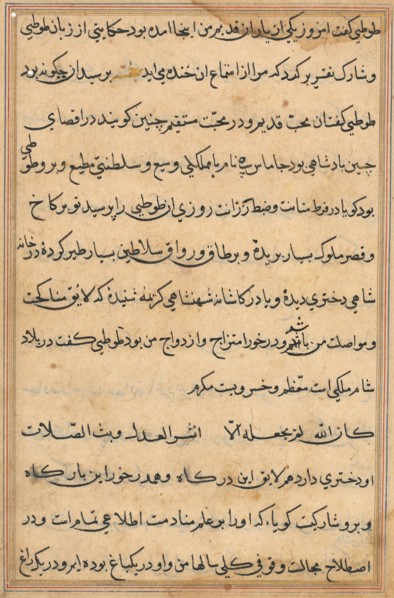 طوطی کفت امروز یکی از یاران قدیم من اینجا امده بود حکایتی از زبان طوطی
و شارک نقش بر کرد که مرا از استماع ان خنده می اید پرسید ان چکونه بود
طوطی کفت ان محب قدیم و در محبت مستقیم چنین کویند در اقصای
چین پادشاهی بود جاماس نام با مملکتی وسیع و سلطنتی مطیع و بر و طوطی
بود کویا در فرط متانت و ضبط رزانت روزی از طوطی پرسید تو بر کاخ
و قصر ملوک بسیار پریدهٔ و بر طاق و رواق سلاطین بسیار طیر کردهٔ در خانه
شاهی دختری دیدهٔ و یا در کاشانه شهنشاهی کریمه شنیدهٔ که لایق مناکحت
و مواصلت من باشد و در خور امتزاج و ازدواج من بود طوطی کفت در بلاد
شام ملکی است معظم و خسرویست مکرم
کان الله لم یجعله الا لنشر العدل و بث الصلات
او دختری دارد هم لایق این درکاه و هم در خور این بارکاه
و بر و شارکیست کویا که او را بر علم منادمت اطلاعی تمام است و در
اصطلاح مجالست وقوفی کلی سالها من و او در یک باغ بوده ایم و در یک راغ